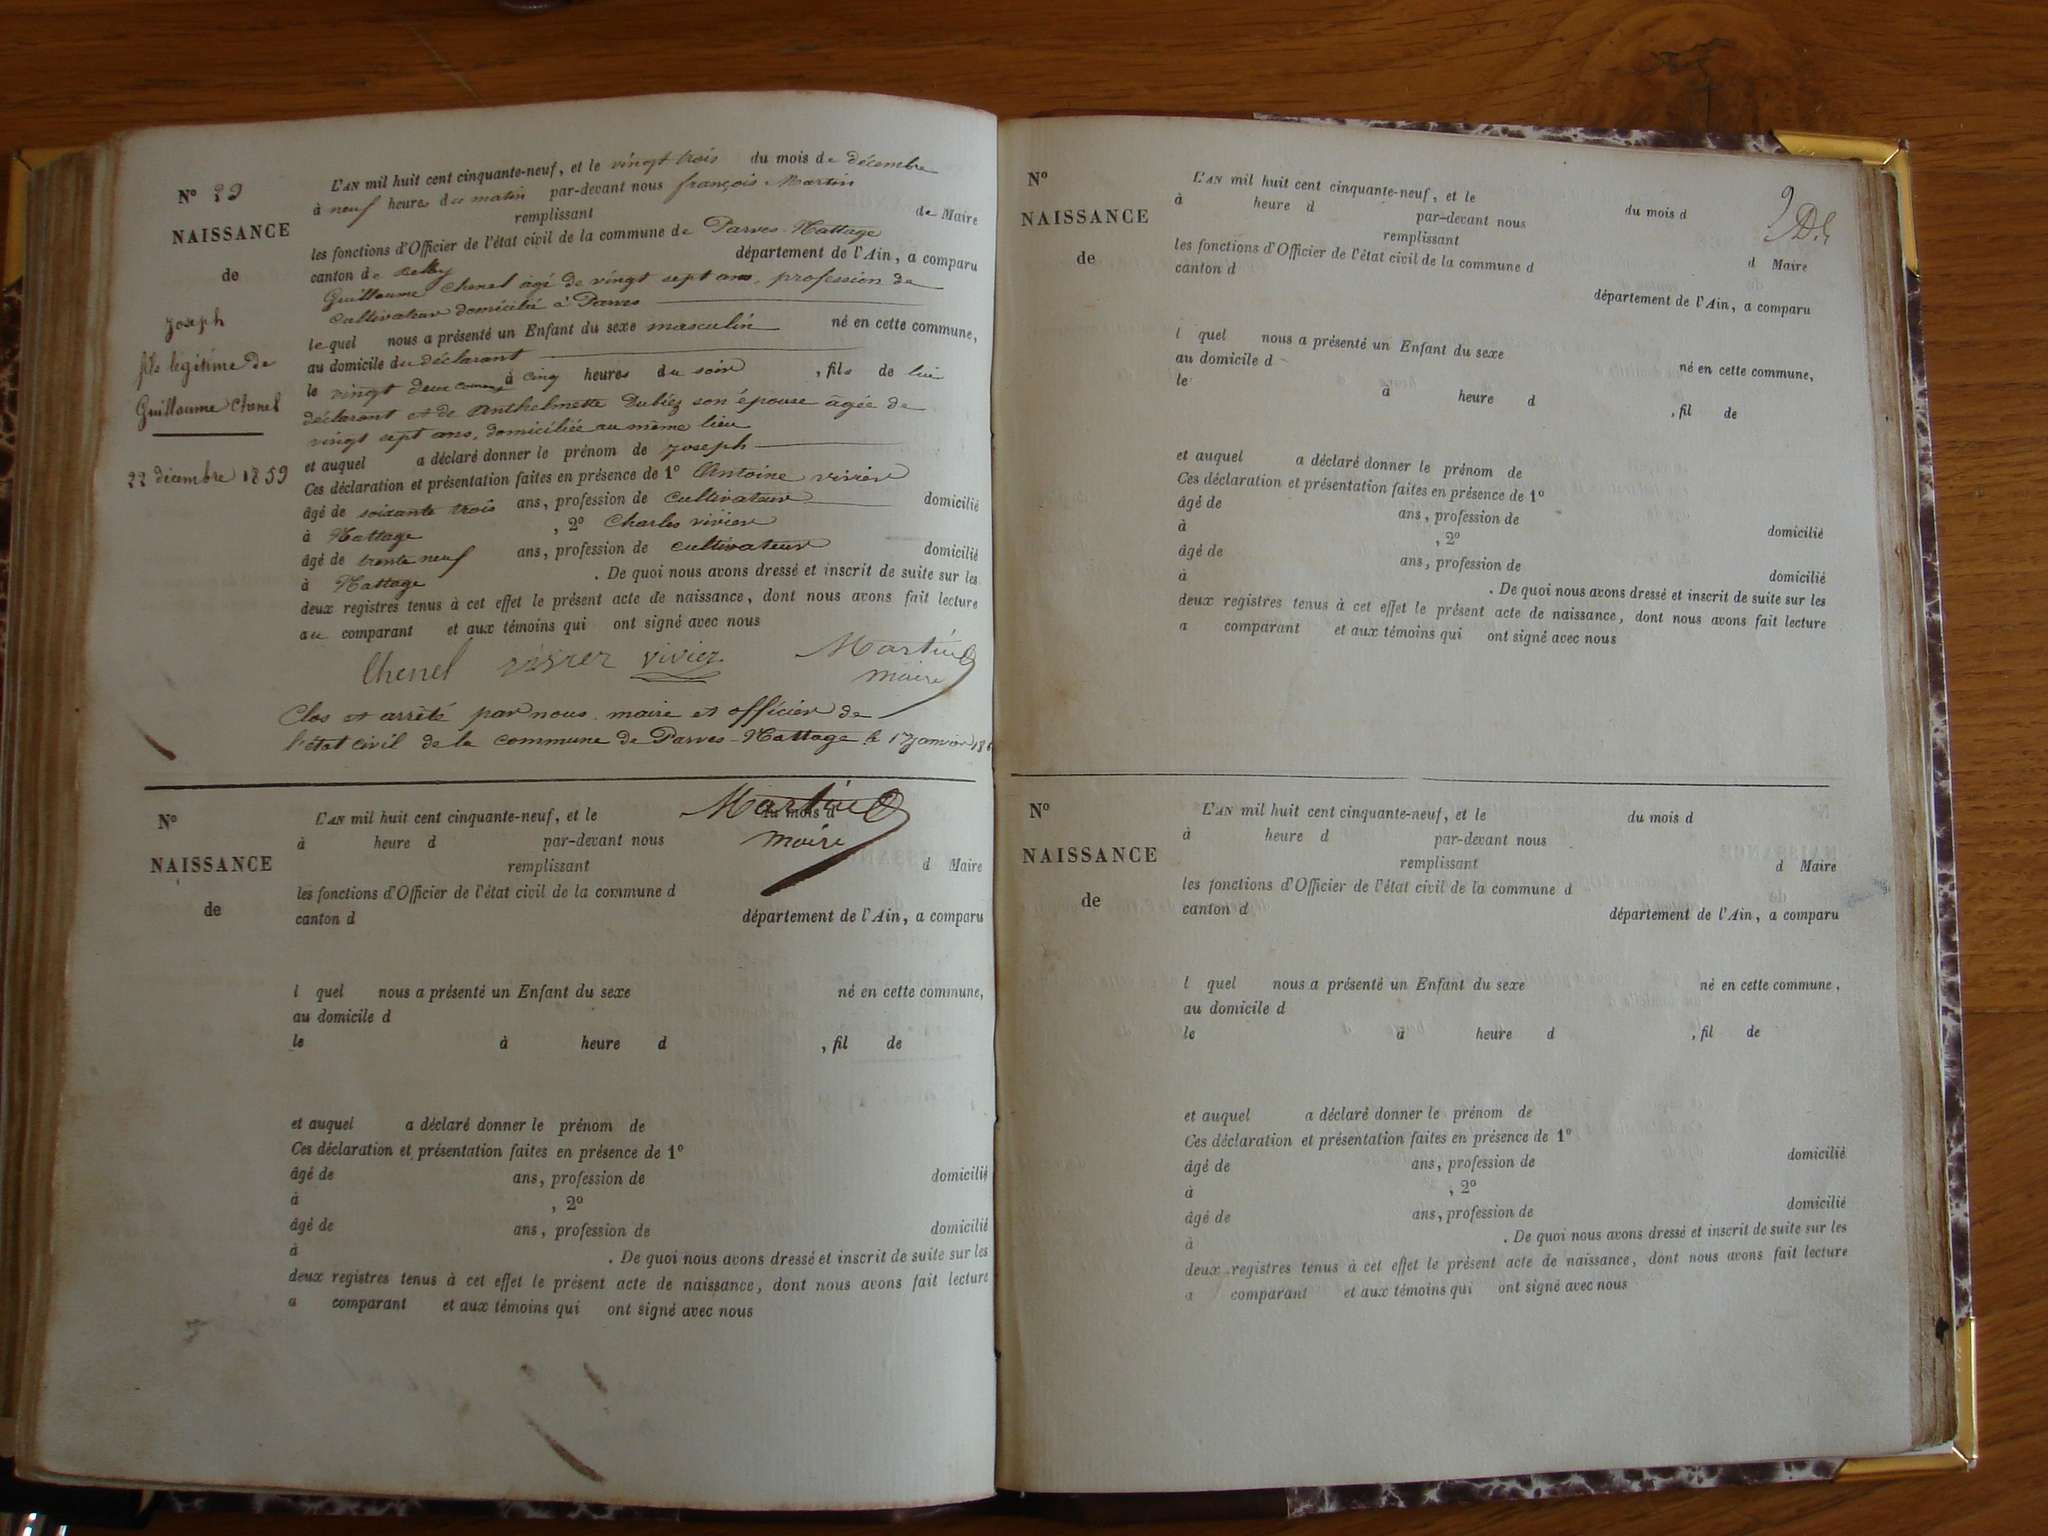 N° 29
NAISSANCE
de
Joseph
fils légitime de
Guillaume Chenel
22 décembre 1859
L'AN mil huit cent cinquante-neuf, et le vingt trois du mois de décembre
à neuf heures du matin par-devant nous françois Martin
remplissant de Maire
les fonctions d'Officier de l'état civil de la commune de Parves-Nattage
canton de Belley département de l'Ain, a comparu
Guillaume Chenel âgé de vingt sept ans, profession de
cultivateur domicilié à Parves
lequel nous a présenté un Enfant du sexe masculin né en cette commune,
au domicile du déclarant
le vingt deux courant à cinq heures du soir, fils de lui
déclarant et de Anthelmette Dubiez son épouse âgée de
vingt sept ans, domiciliée au même lieu
et auquel a déclaré donner le prénom de Joseph
Ces déclaration et présentation faites en présence de 1° Antoine vivier
âgé de soixante trois ans, profession de cultivateur domicilié
à Nattage, 2° Charles vivier
âgé de trente neuf ans, profession de cultivateur domicilié
à Nattage. De quoi nous avons dressé et inscrit de suite sur les
deux registres tenus à cet effet le présent acte de naissance, dont nous avons fait lecture
au comparant et aux témoins qui ont signé avec nous
Chenel vivier vivier Martin
maire
Clos et arrêté par nous maire et officier de
l'état civil de la commune de Parves-Nattage le 1er janvier 18
Martin
maire
N°
NAISSANCE
de
L'AN mil huit cent cinquante-neuf, et le du mois d
à heure d par-devant nous
remplissant d Maire
les fonctions d'Officier de l'état civil de la commune d
canton d département de l'Ain, a comparu
l quel nous a présenté un Enfant du sexe né en cette commune,
au domicile d
le à heure d , fil de
et auquel a déclaré donner le prénom de
Ces déclaration et présentation faites en présence de 1°
âgé de ans, profession de domicilié
à , 2°
âgé de ans, profession de domicilié
à . De quoi nous avons dressé et inscrit de suite sur les
deux registres tenus à cet effet le présent acte de naissance, dont nous avons fait lecture
a comparant et aux témoins qui ont signé avec nous
9
N°
NAISSANCE
de
L'AN mil huit cent cinquante-neuf, et le du mois d
à heure d par-devant nous
remplissant d Maire
les fonctions d'Officier de l'état civil de la commune d
canton d département de l'Ain, a comparu
l quel nous a présenté un Enfant du sexe né en cette commune,
au domicile d
le à heure d , fil de
et auquel a déclaré donner le prénom de
Ces déclaration et présentation faites en présence de 1°
âgé de ans, profession de domicilié
à , 2°
âgé de ans, profession de domicilié
à . De quoi nous avons dressé et inscrit de suite sur les
deux registres tenus à cet effet le présent acte de naissance, dont nous avons fait lecture
a comparant et aux témoins qui ont signé avec nous
N°
NAISSANCE
de
L'AN mil huit cent cinquante-neuf, et le du mois d
à heure d par-devant nous
remplissant d Maire
les fonctions d'Officier de l'état civil de la commune d
canton d département de l'Ain, a comparu
l quel nous a présenté un Enfant du sexe né en cette commune,
au domicile d
le à heure d , fil de
et auquel a déclaré donner le prénom de
Ces déclaration et présentation faites en présence de 1°
âgé de ans, profession de domicilié
à , 2°
âgé de ans, profession de domicilié
à . De quoi nous avons dressé et inscrit de suite sur les
deux registres tenus à cet effet le présent acte de naissance, dont nous avons fait lecture
a comparant et aux témoins qui ont signé avec nous